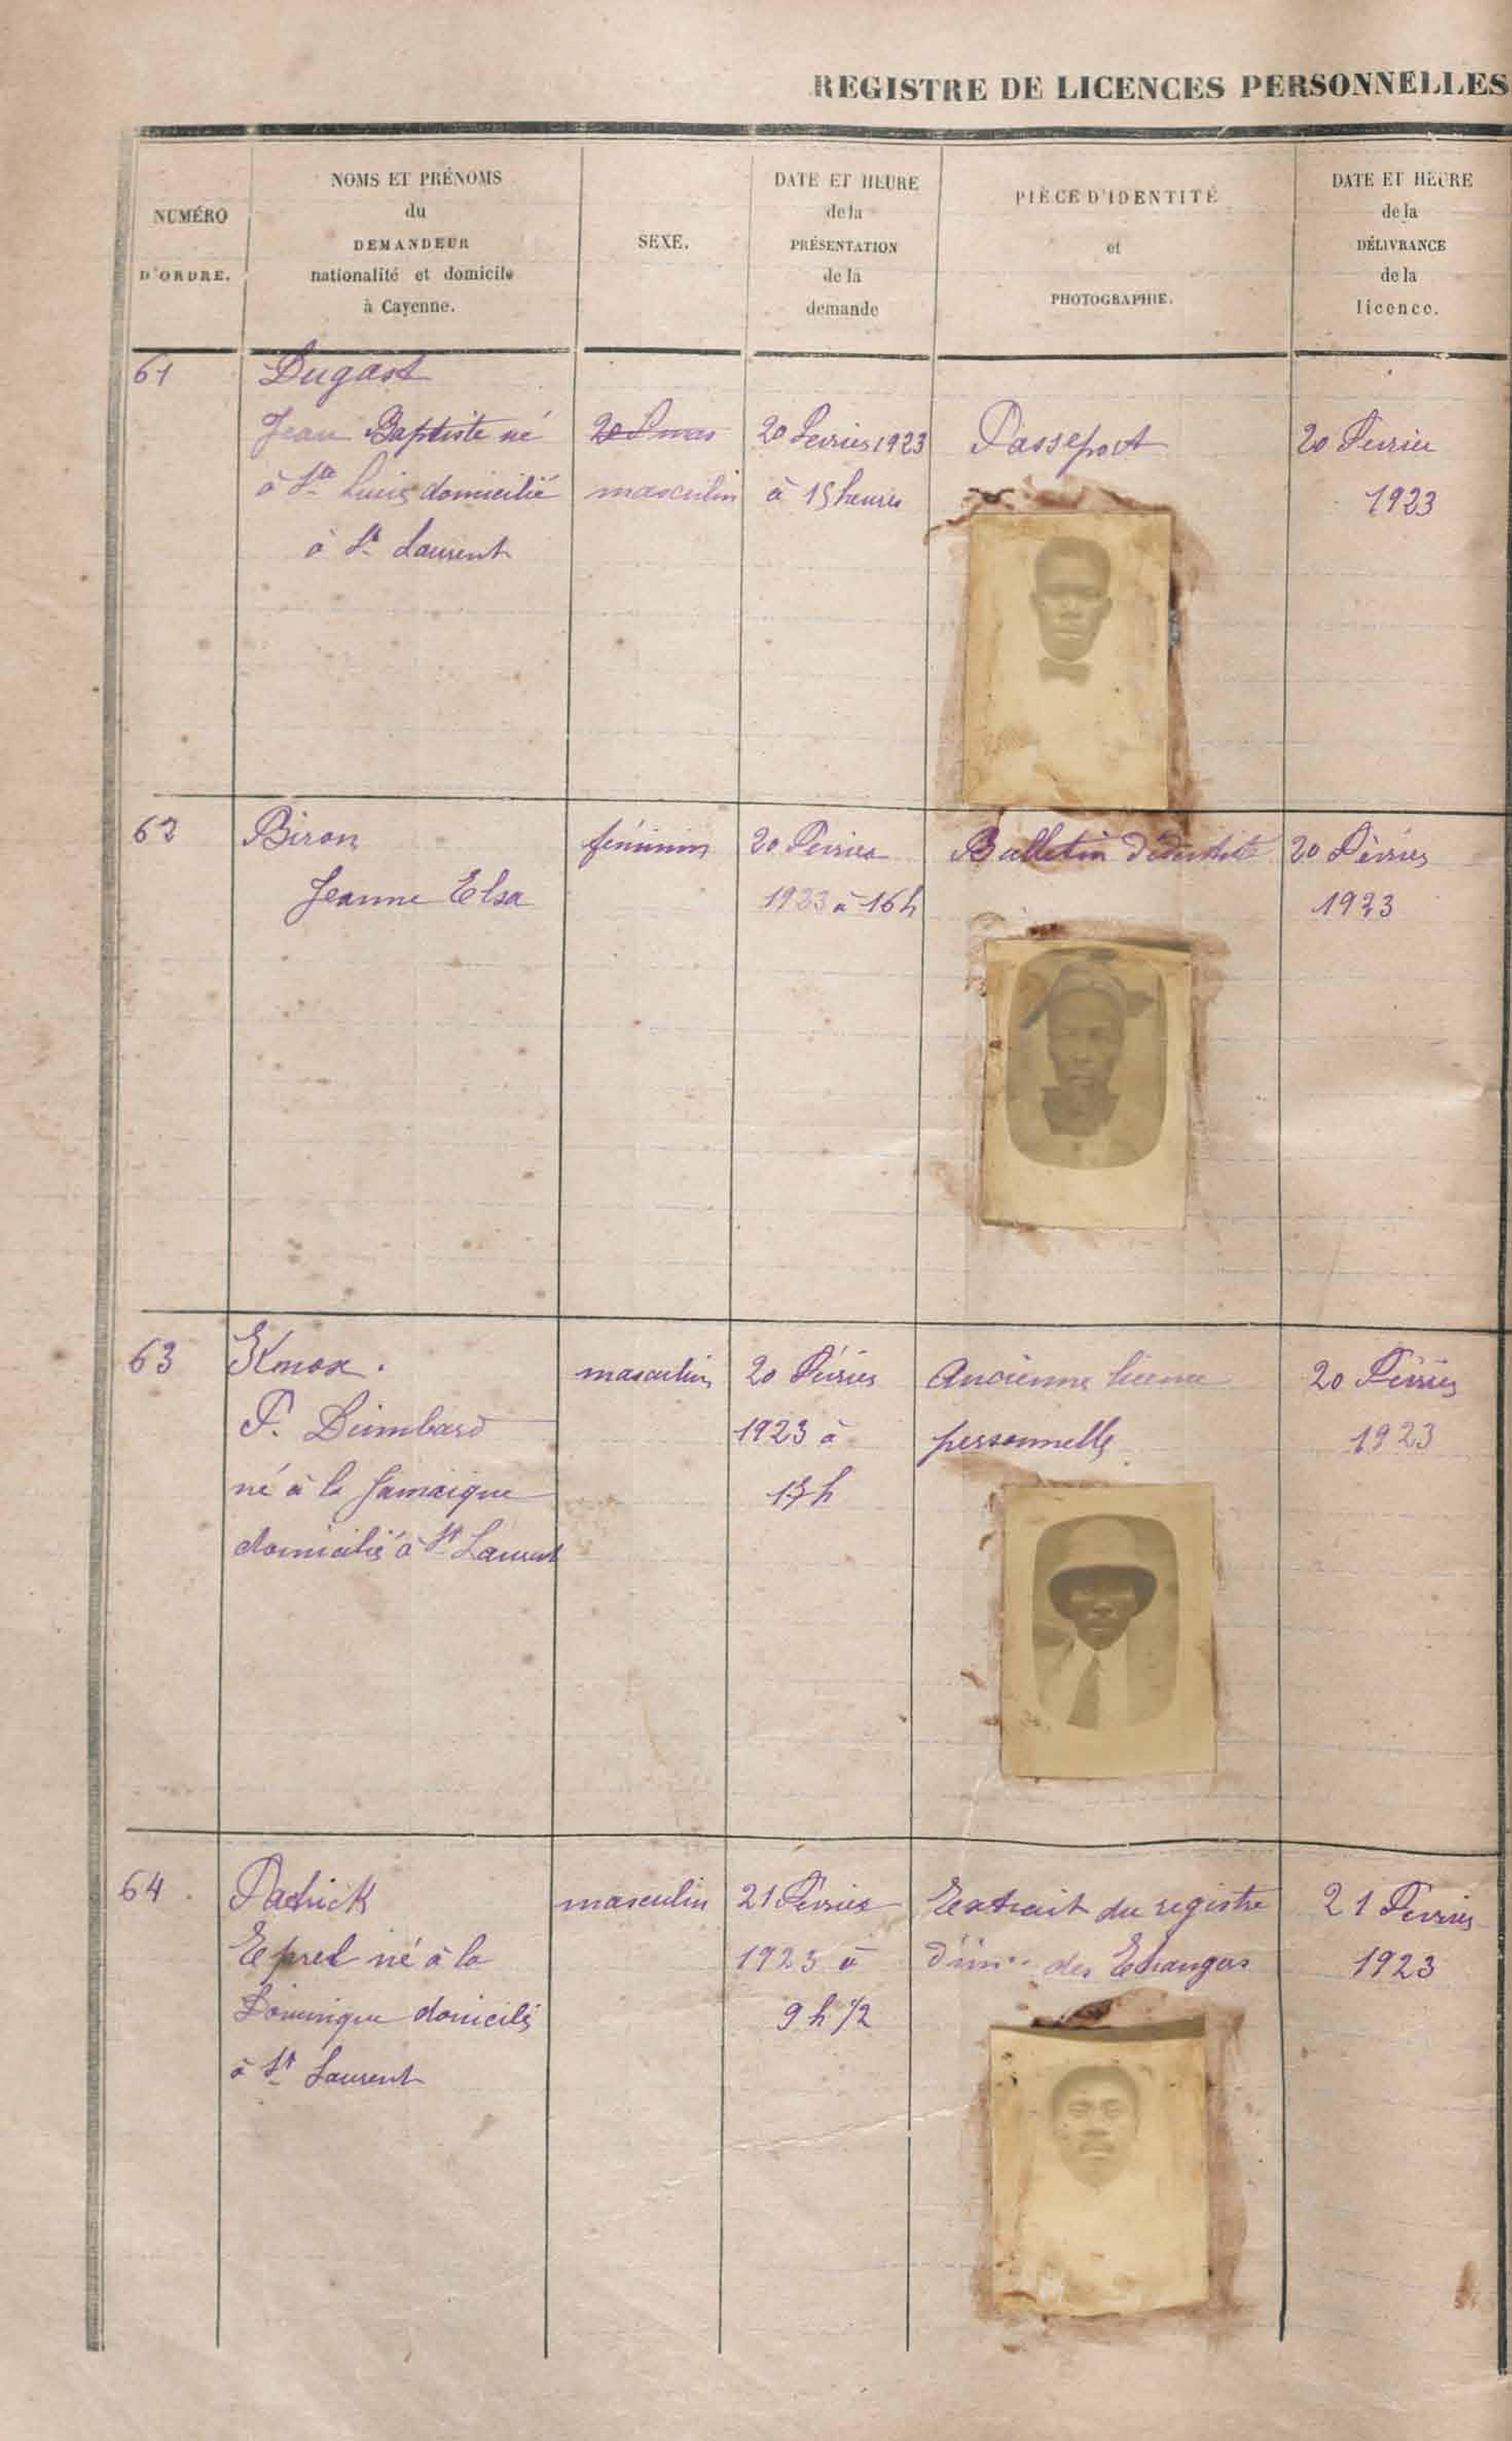 REGISTRE DE LICENCES PERSONNELLES
NUMÉRO
D'ORDRE.
NOMS ET PRÉNOMS
du
DEMANDEUR
nationalité et domicile
à Cayenne.
SEXE.
DATE ET HEURE
de la
PRÉSENTATION
de la
demande
PIÈCE D'IDENTITÉ
et
PHOTOGRAPHIE.
DATE ET HEURE
de la
DÉLIVRANCE
de la
licence.
61
Dugast
Jean Baptiste né
à Ste Lucie domicilié
à St Laurent
masculin
20 Fevrier 1923
à 15 heures
Passeport
20 Fevrier
1923
62
Biron
Jeanne Elsa
féminin
20 Fevrier
1923 à 16 h
Bulletin d'identité
20 Fevrier
1923
63
Knox.
F.
né à la Jamaique
domicilié à St Laurent
masculin
20 Fevrier
1923 à
17 h
Ancienne licence
personnelle
20 Fevrier
1923
64
Patrick
né à la
Dominique domicilié
à St Laurent
masculin
21 Fevrier
1923 à
9 h 1/2
Extrait du registre
d'imm.. des Etrangers
21 Fevrier
1923